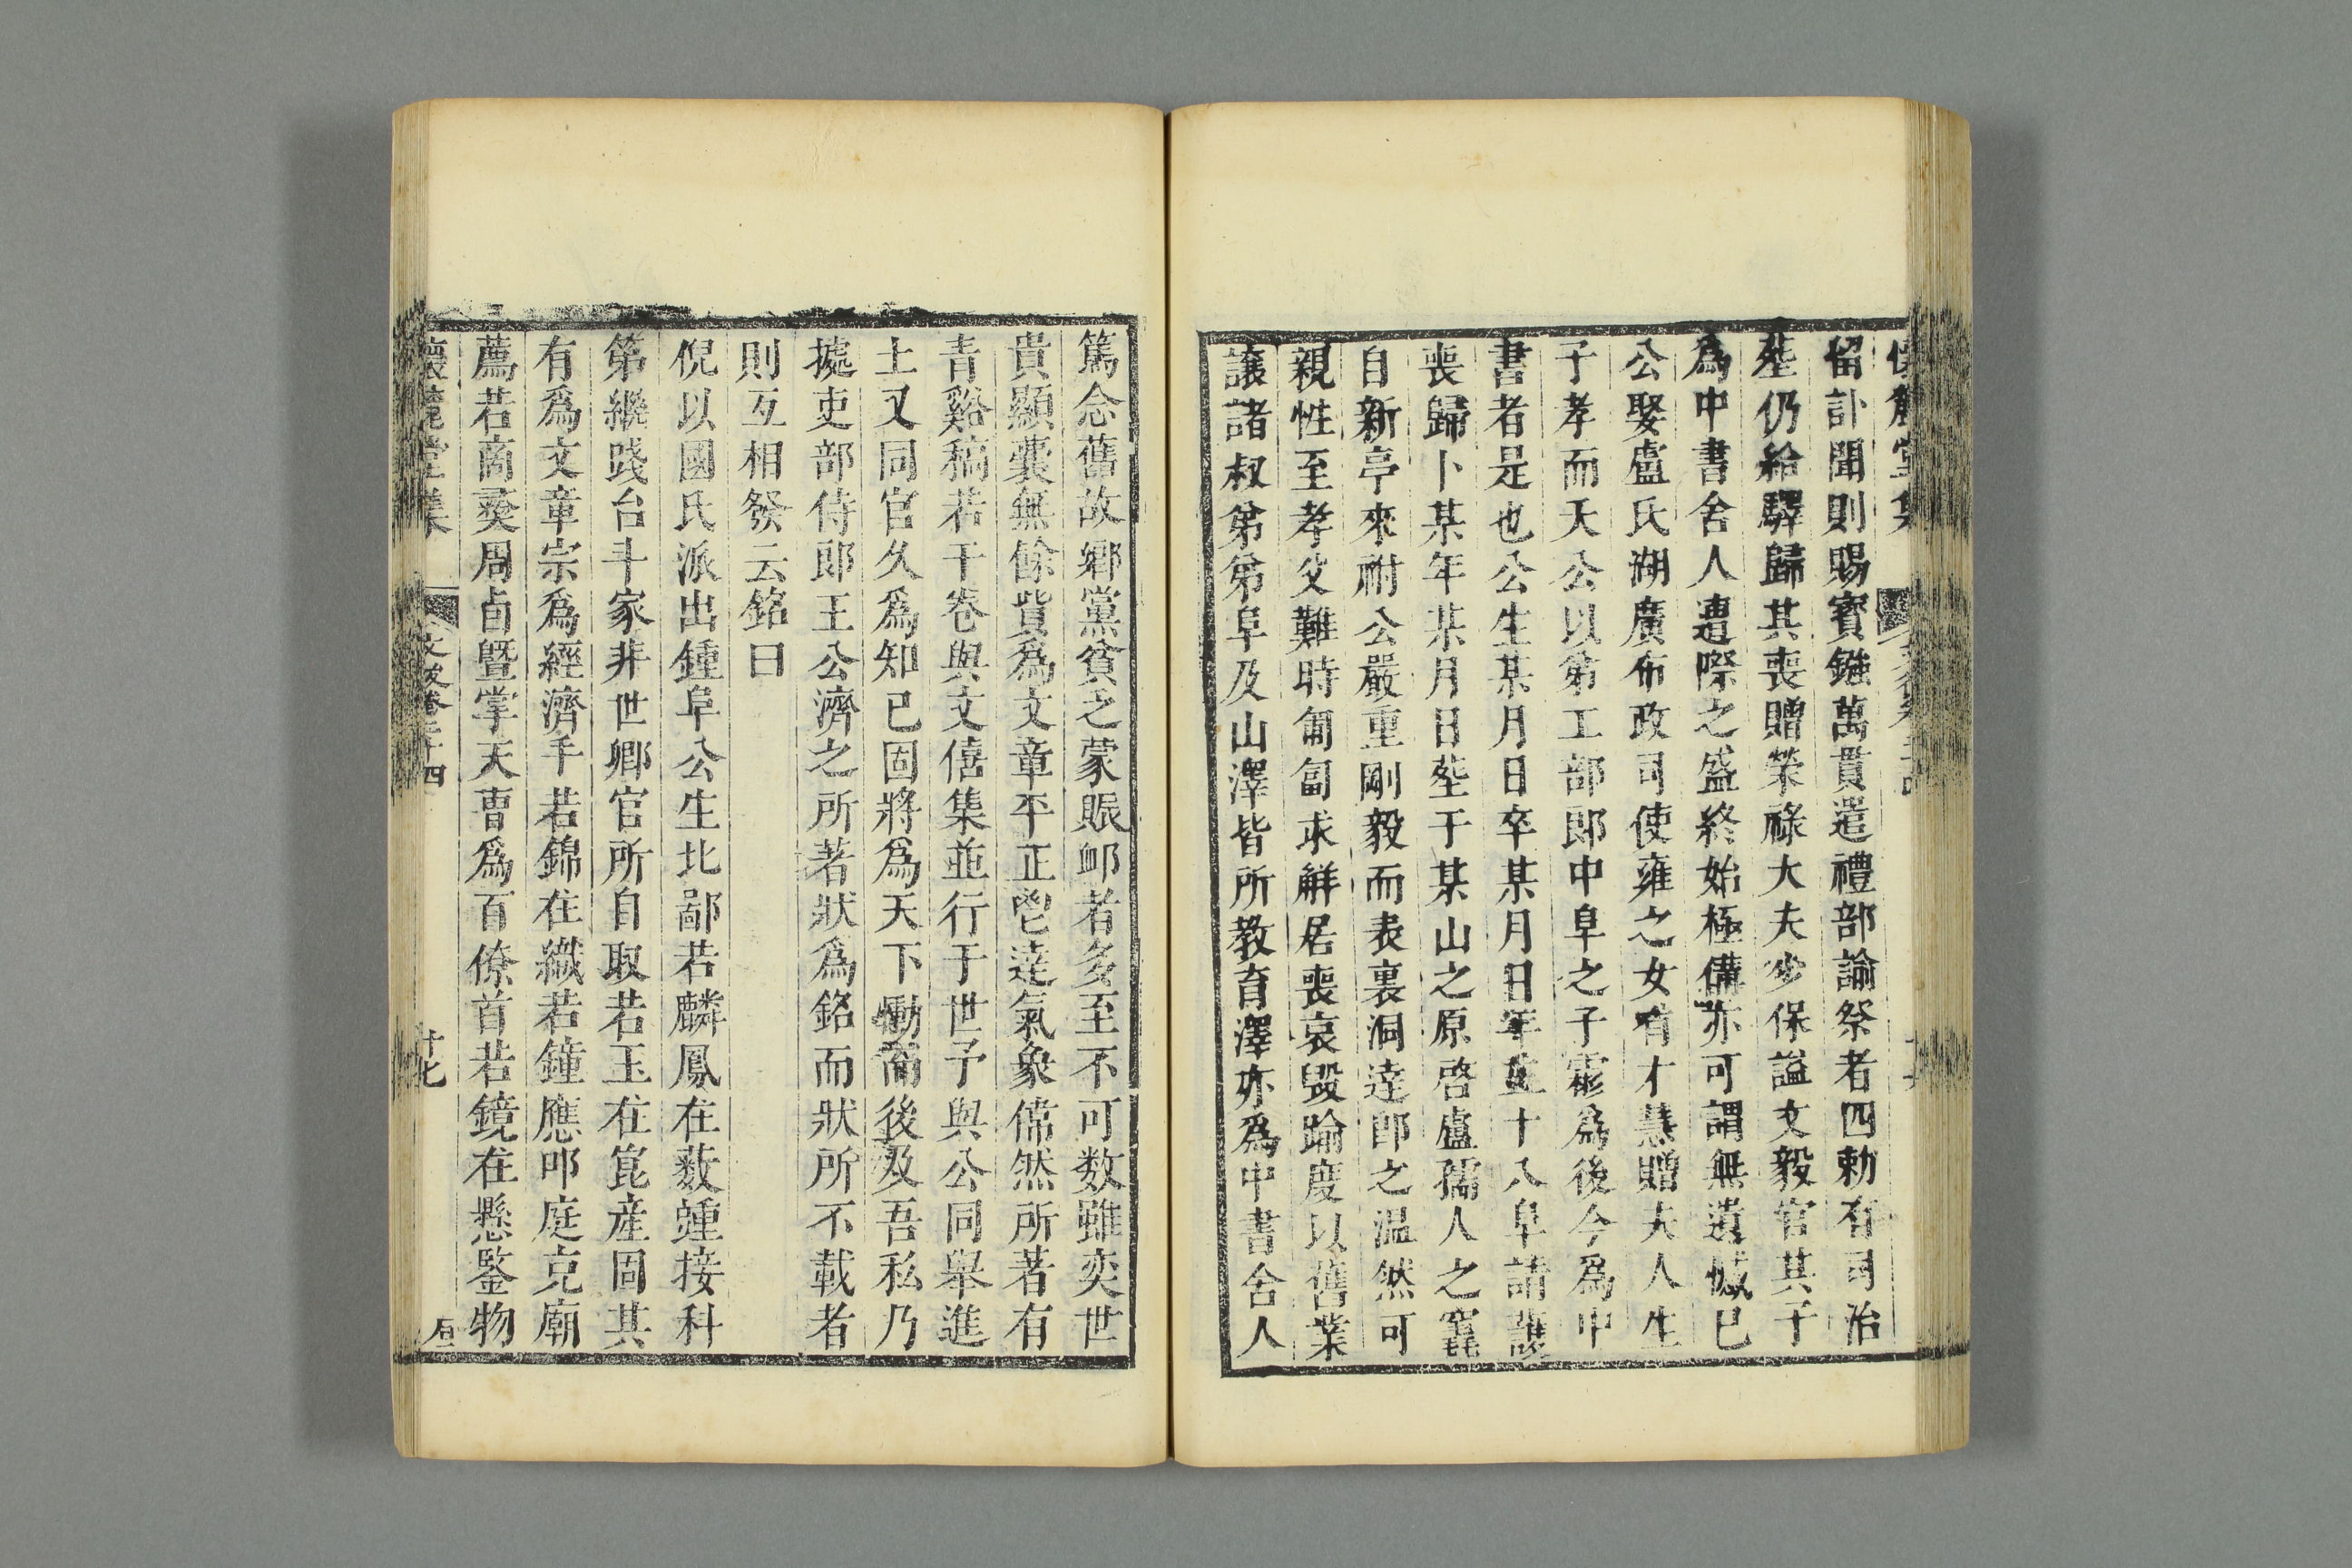 留訃聞則賜寶鏹萬貫遣禮部諭祭者四勅有司治
塟仍給驛歸其喪贈榮祿大夫少保諡文毅官其子
為中書舍人遭際之盛終始極備亦可謂無遺憾已
公娶盧氏湖廣布政司使雍之女有才慧贈夫人生
子孝而夭公以弟工部郎中阜之子霦為後今為中
書者是也公生某月日卒某月日年五十八阜請護
喪歸卜某年某月日塟于某山之原啓盧孺人之窆
自新亭來祔公嚴重剛毅而表裏洞達即之温然可
親性至孝父難時匍匐求解居喪哀毀踰度以舊業
讓諸叔弟弟阜及山澤皆所教育澤亦為中書舍人
篤念舊故鄉黨貧乏蒙賑卹者多至不可数雖奕世
貴顯囊無餘貲為文章平正鬯達氣象偉然所著有
青谿稿若干卷與文僖集並行于世予與公同舉進
士又同官久為知已固將為天下慟而後及吾私乃
摭吏部侍郎王公濟之所著狀為銘而狀所不載者
則互相發云銘曰
倪以國氏派出鍾阜公生北鄙若麟鳳在薮踵接科
第繼踐台斗家非世卿官所自取若玉在崑産固其
有為文章宗為經濟手若錦在織若鐘應叩庭克廟
薦若商彛周卣曁掌天曹為百僚首若鏡在懸鑒物
懷麓堂集
文後卷二十四
十七